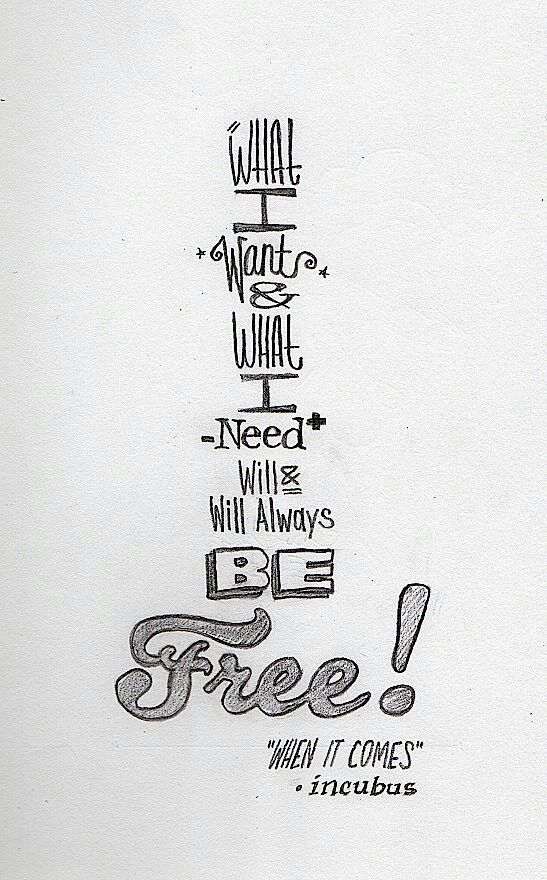 "WHAT
I
Want
&
WHAT
I
-Need+
Will &
Will Always
BE
Free!
"WHEN IT COMES"
• incubus